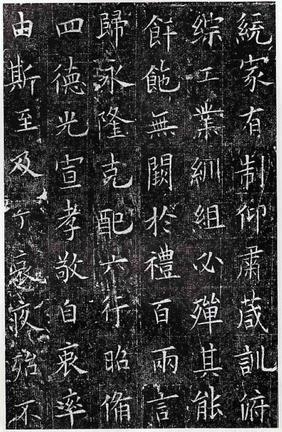 統家有制仰肅葴訓俯
綜工業紃組必殫其能
無闕於禮百兩言
歸永隆克配六行昭脩
四德光宣孝敬自衷率
由斯至及丁哀疚殆不